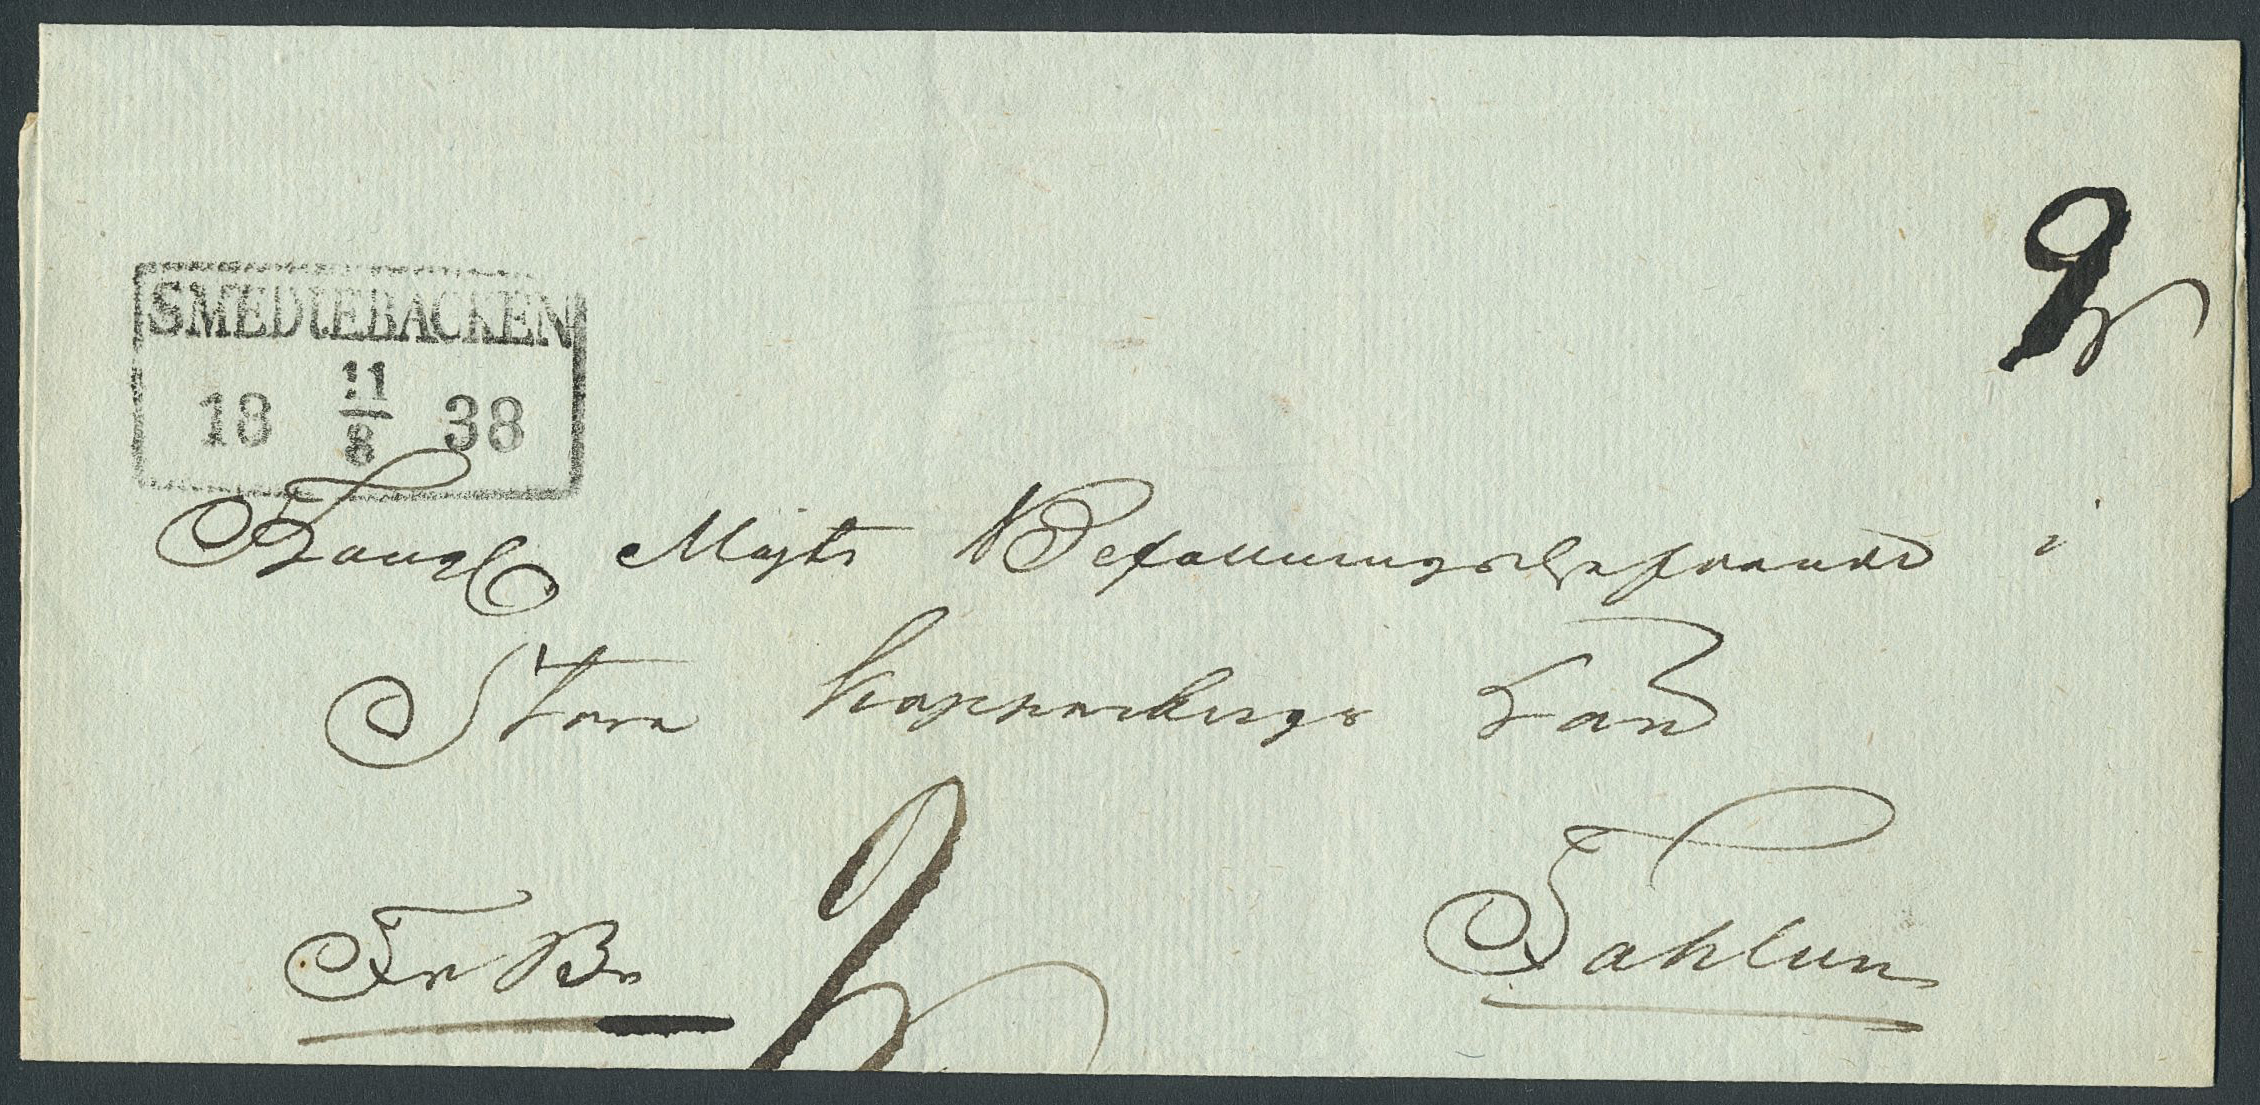 SMEDJEBACKEN
18 11/8 38
Kongl Majts Befallningshafvande i
Stora Kopparbergs Län
Fr Br
Fahlun